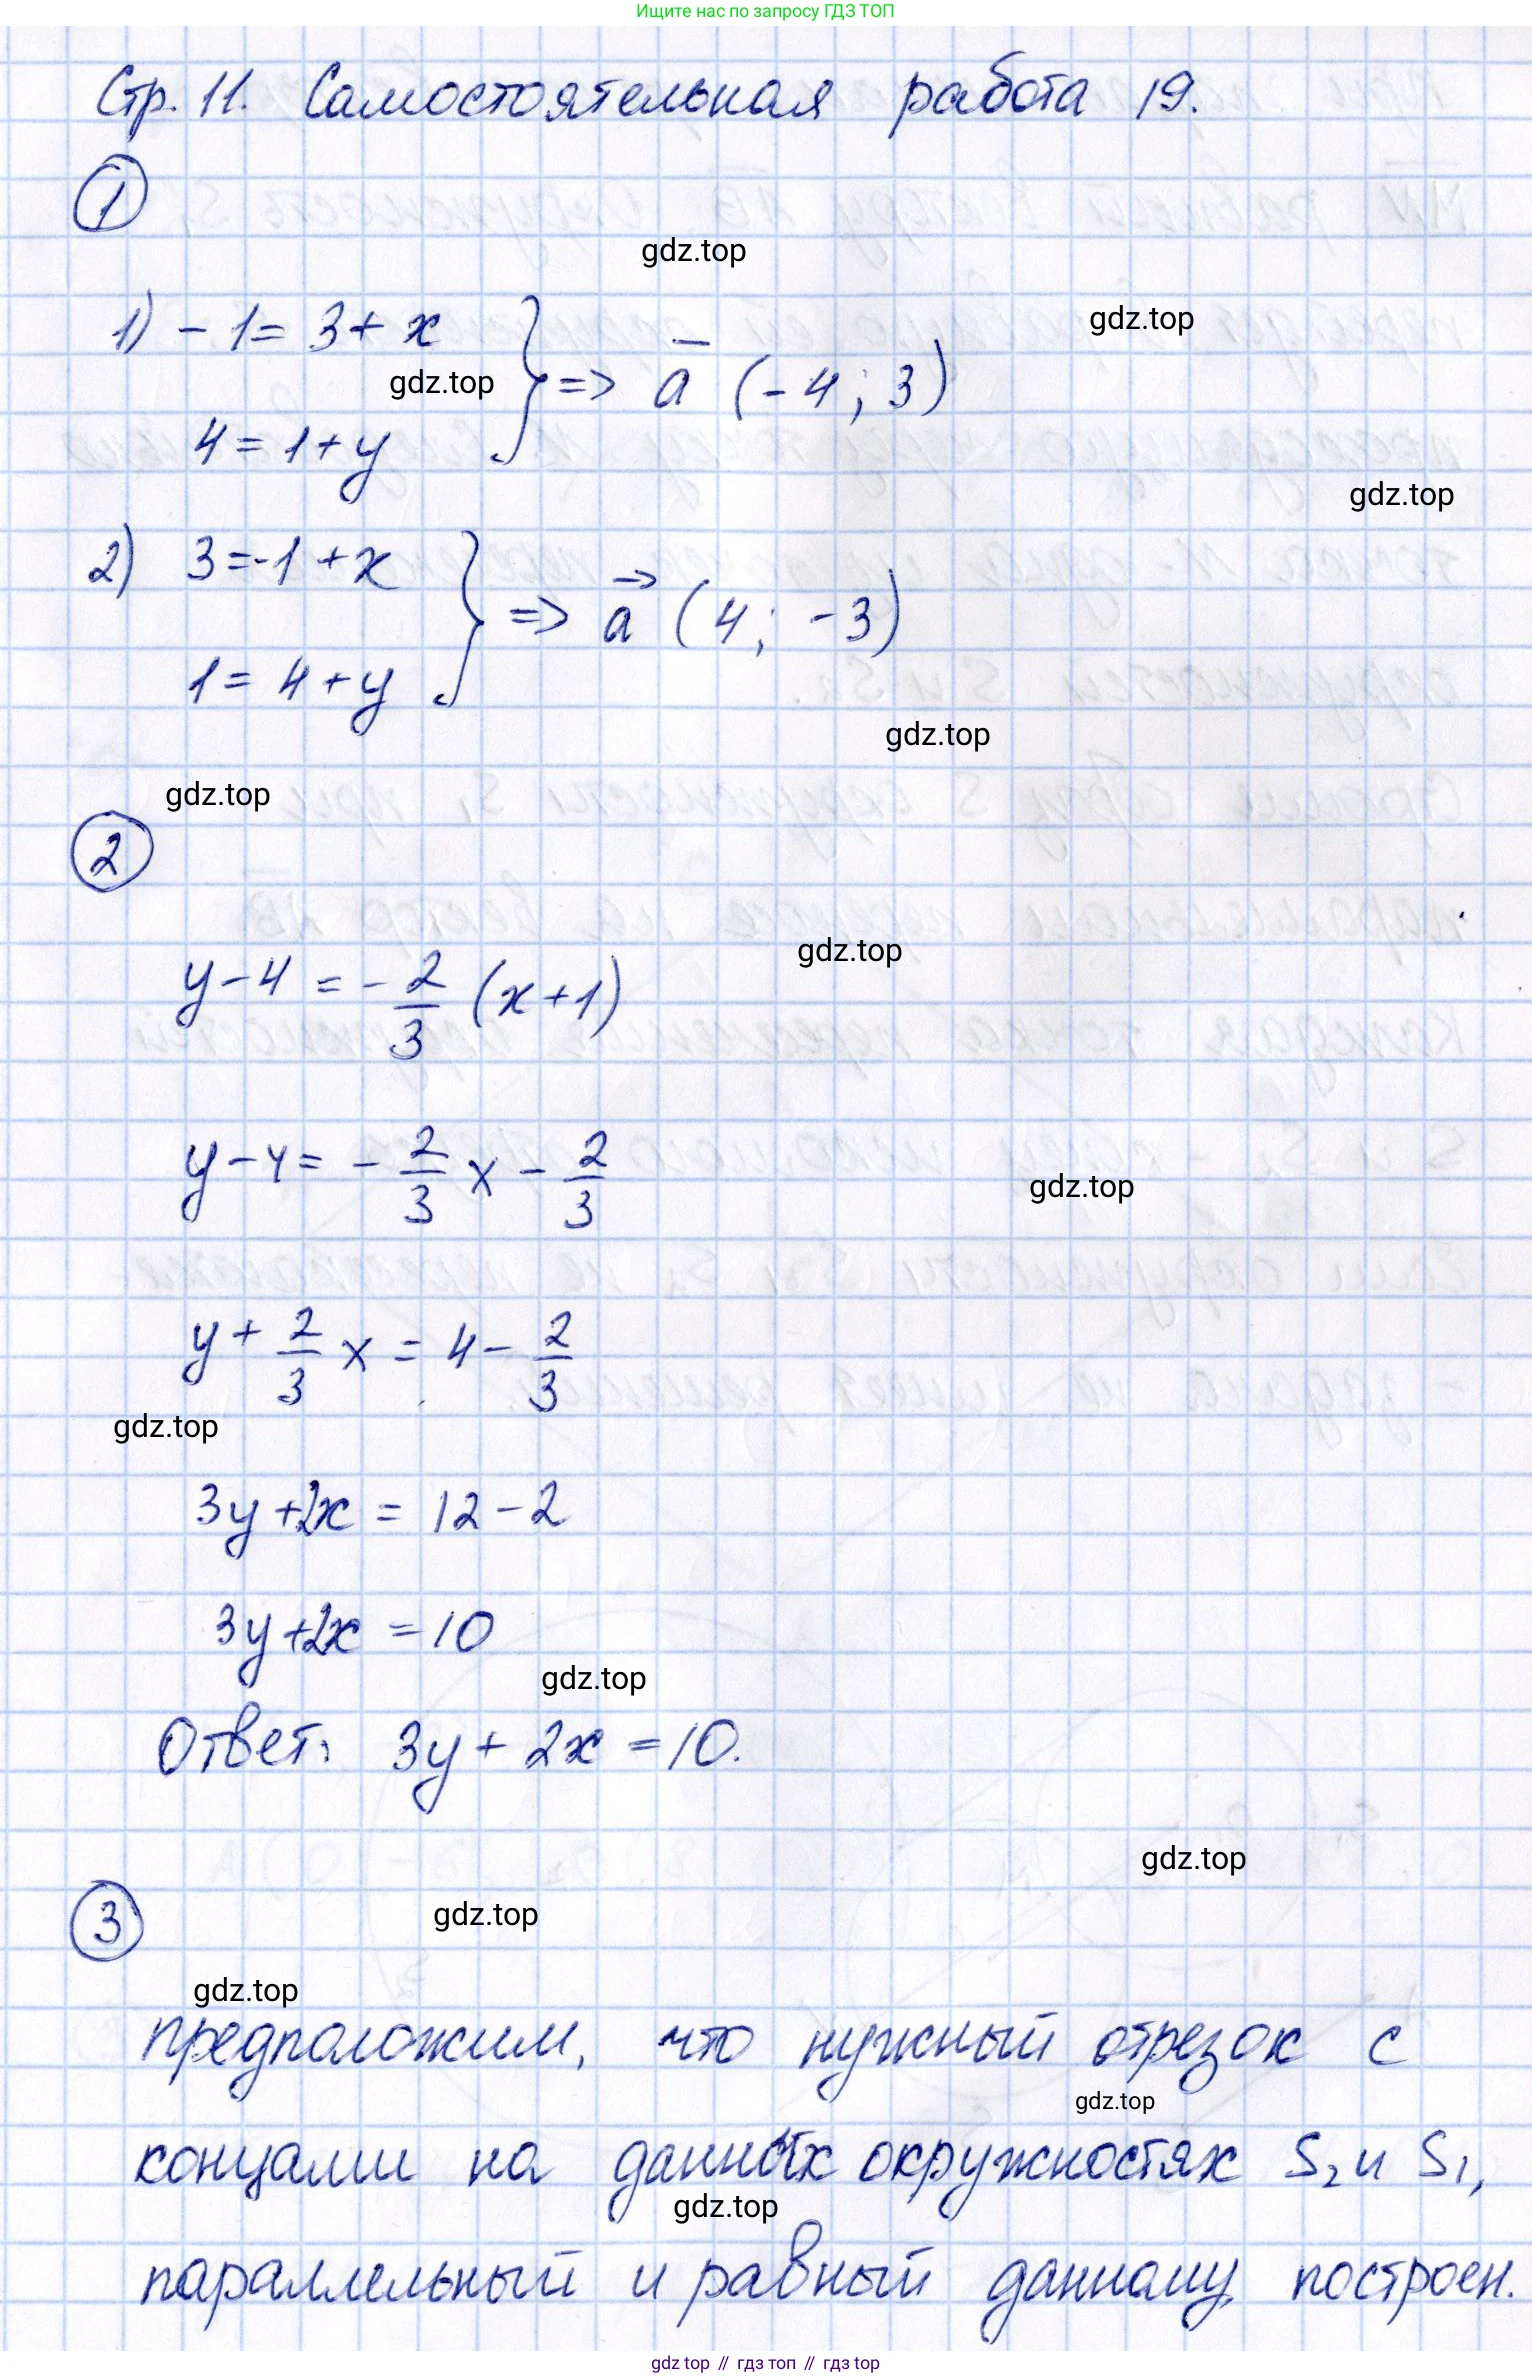 Ищите нас по запросу ГДЗ ТОП
Стр. 11. Самостоятельная работа 19.
1
gdz.top
1) - 1 = 3 + x
gdz.top
gdz.top
=> a̅ (-4; 3)
4 = 1 + y
gdz.top
2) 3 = -1 + x
=> a⃗ (4; -3)
1 = 4 + y
gdz.top
gdz.top
2
gdz.top
y - 4 = - 2/3 (x + 1)
y - 4 = - 2/3 x - 2/3
gdz.top
y + 2/3 x = 4 - 2/3
gdz.top
3y + 2x = 12 - 2
3y + 2x = 10
gdz.top
Ответ: 3y + 2x = 10.
gdz.top
3
gdz.top
gdz.top
предположим, что нужный отрезок с
gdz.top
концами на данных окружностях S₂ и S₁,
gdz.top
параллельный и равный данному, построен.
gdz.top // гдз топ // гдз.top